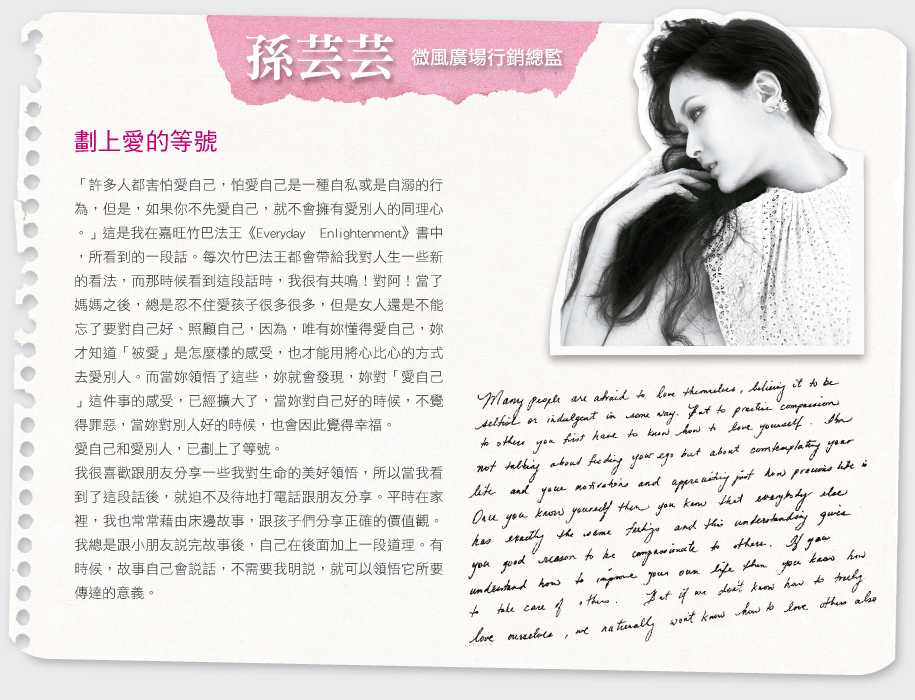 孫芸芸 微風廣場行銷總監
劃上愛的等號
「許多人都害怕愛自己，怕愛自己是一種自私或是自溺的行
為，但是，如果你不先愛自己，就不會擁有愛別人的同理心
。」這是我在嘉旺竹巴法王《Everyday Enlightenment》書中
，所看到的一段話。每次竹巴法王都會帶給我對人生一些新
的看法，而那時候看到這段話時，我很有共鳴！對阿！當了
媽媽之後，總是忍不住愛孩子很多很多，但是女人還是不能
忘了要對自己好、照顧自己，因為，唯有妳懂得愛自己，妳
才知道「被愛」是怎麼樣的感受，也才能用將心比心的方式
去愛別人。而當妳領悟了這些，妳就會發現，妳對「愛自己
」這件事的感受，已經擴大了，當妳對自己好的時候，不覺
得罪惡，當妳對別人好的時候，也會因此覺得幸福。
愛自己和愛別人，已劃上了等號。
我很喜歡跟朋友分享一些我對生命的美好領悟，所以當我看
到了這段話後，就迫不及待地打電話跟朋友分享。平時在家
裡，我也常常藉由床邊故事，跟孩子們分享正確的價值觀。
我總是跟小朋友說完故事後，自己在後面加上一段道理。有
時候，故事自己會說話，不需要我明說，就可以領悟它所要
傳達的意義。
Many people are afraid to love themselves, believing it to be
selfish or indulgent in some way. But to practice compassion
to others you first have to know how to love yourself. I'm
not talking about feeding your ego but about contemplating your
life and your motivations and appreciating just how precious life is
Once you know yourself then you know that everybody else
has exactly the same feelings and this understanding gives
you good reason to be compassionate to others. If you
understand how to improve your own life then you know how
to take care of others. But if we don't know how to truly
love ourselves, we naturally won't know how to love others also